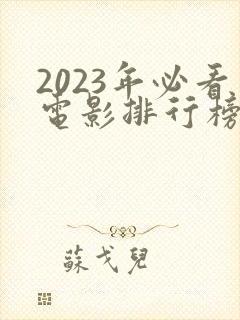 2023年必看
電影排行榜
蘇戈兒